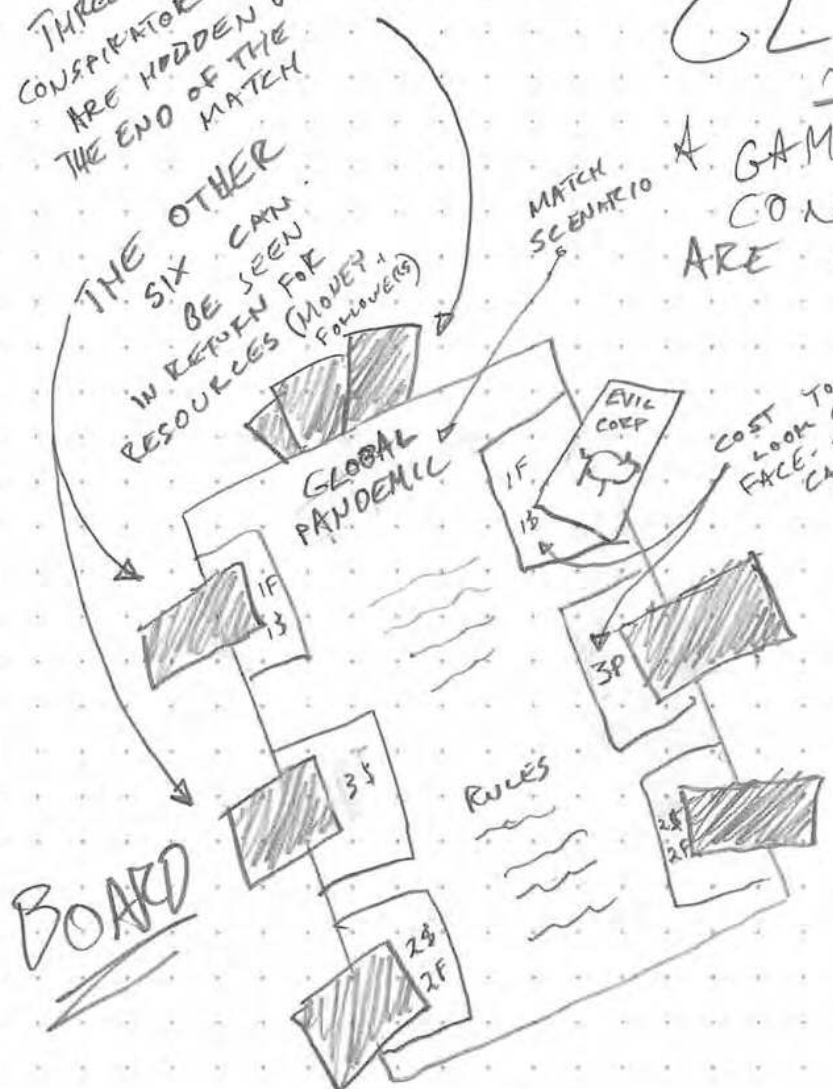 CONSPIRATOR
ARE HIDDEN
THE END OF THE
MATCH
THE OTHER
SIX CAN
BE SEEN
IN RETURN FOR
RESOURCES (MONEY +
FOLLOWERS)
MATCH
SCENARIO
A
CON
ARE
GLOBAL
PANDEMIC
1F
1$
EVIL
CORP
COST TO
LOOK
FACE-
1F
1$
3F
3$
RULES
2$
2F
2$
2F
BOARD